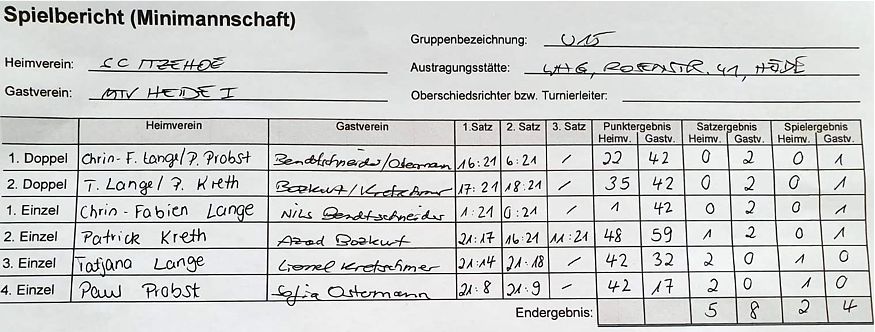 Spielbericht (Minimannschaft)
Gruppenbezeichnung: U15
Heimverein: SC ITZEHOE
Austragungsstätte: LHG, ROSENSTR. 41, HEIDE
Gastverein: MTV HEIDE I
Oberschiedsrichter bzw. Turnierleiter:
Heimverein Gastverein 1.Satz 2. Satz 3. Satz Punktergebnis Satzergebnis Spielergebnis
Heimv. Gastv. Heimv. Gastv. Heimv. Gastv.
1. Doppel Chrin-F. Lange/P. Probst Bendtschneider/Ostermann 16:21 6:21 / 22 42 0 2 0 1
2. Doppel T. Lange/ P. Kreth Bozkurt/Kretschmer 17:21 18:21 / 35 42 0 2 0 1
1. Einzel Chrin-Fabien Lange Nils Bendtschneider 1:21 0:21 / 1 42 0 2 0 1
2. Einzel Patrick Kreth Azad Bozkurt 21:17 16:21 11:21 48 59 1 2 0 1
3. Einzel Tatjana Lange Lionel Kretschmer 21:14 21:18 / 42 32 2 0 1 0
4. Einzel Paul Probst Sofia Ostermann 21:8 21:9 / 42 17 2 0 1 0
Endergebnis: 5 8 2 4